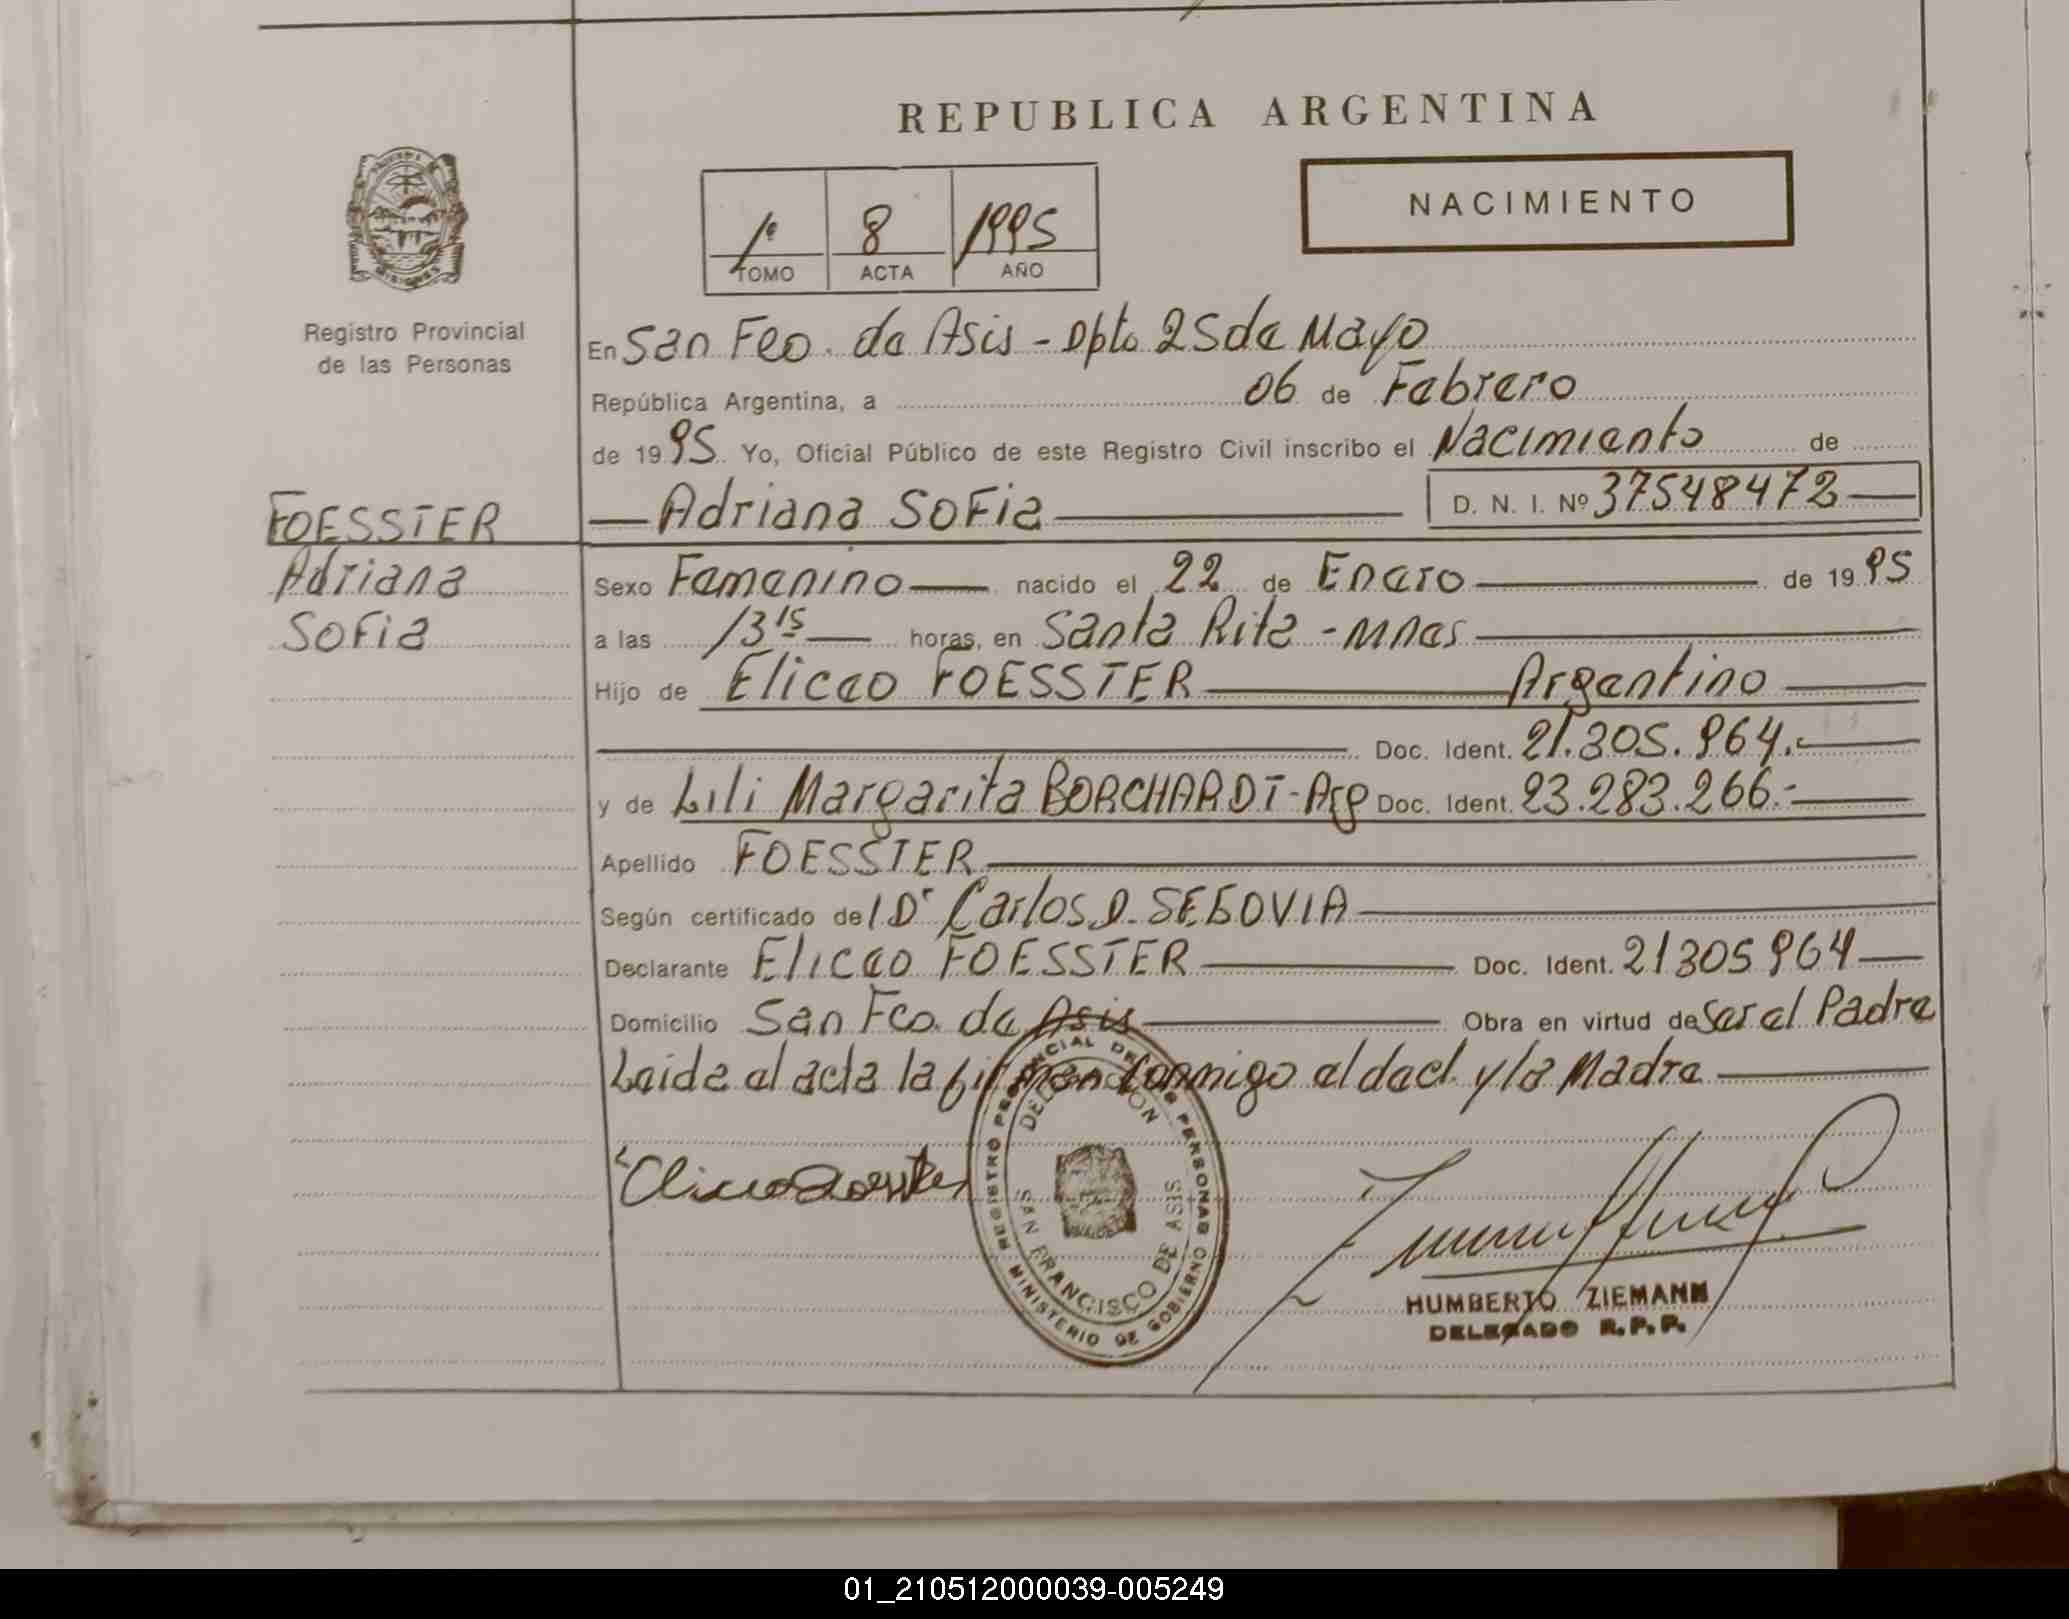 REPUBLICA ARGENTINA
NACIMIENTO
1º 8 1995
TOMO ACTA AÑO
Registro Provincial
de las Personas
En San Fco. de Asis - Dpto 25 de Mayo
República Argentina, a 06 de Febrero
de 1995 Yo, Oficial Público de este Registro Civil inscribo el Nacimiento de
FOESSTER
Adriana
Sofia
Adriana Sofia D. N. I. Nº 37548472
Sexo Femenino nacido el 22 de Enero de 1995
a las 13 15 horas, en Santa Rita - Mnes
Hijo de Eliceo FOESSTER Argentino
Doc. Ident. 21.305.964.-
y de Lili Margarita BORCHARDT - Arg Doc. Ident. 23.283.266.-
Apellido FOESSTER
Según certificado del Dr Carlos D. SEGOVIA
Declarante Eliceo FOESSTER Doc. Ident. 21305964
Domicilio San Fco. de Asis Obra en virtud de ser el Padre
Leida el acta la firman conmigo el decl. y la Madre
REGISTRO PROVINCIAL DE LAS PERSONAS
DELEGACION
SAN FRANCISCO DE ASIS
MINISTERIO DE GOBIERNO
HUMBERTO ZIEMANN
DELEGADO R.P.P.
01_210512000039-005249